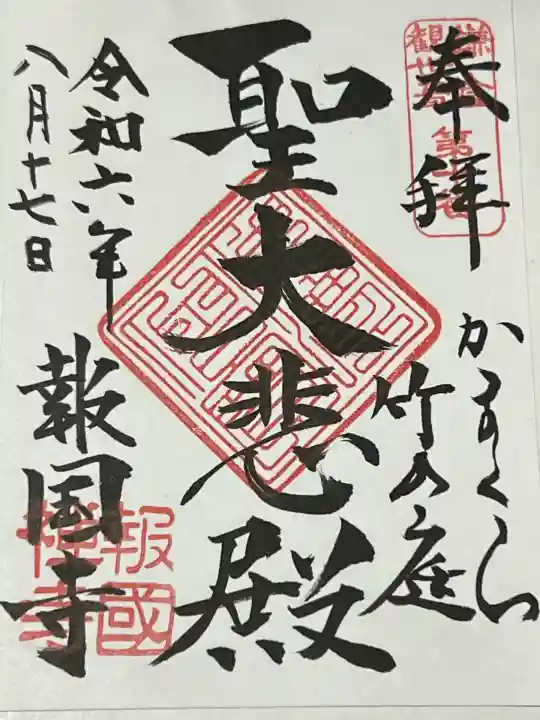 奉拝
かまくら
竹の庭
聖大悲殿
令和六年
八月十七日
報国寺
報國
禅寺